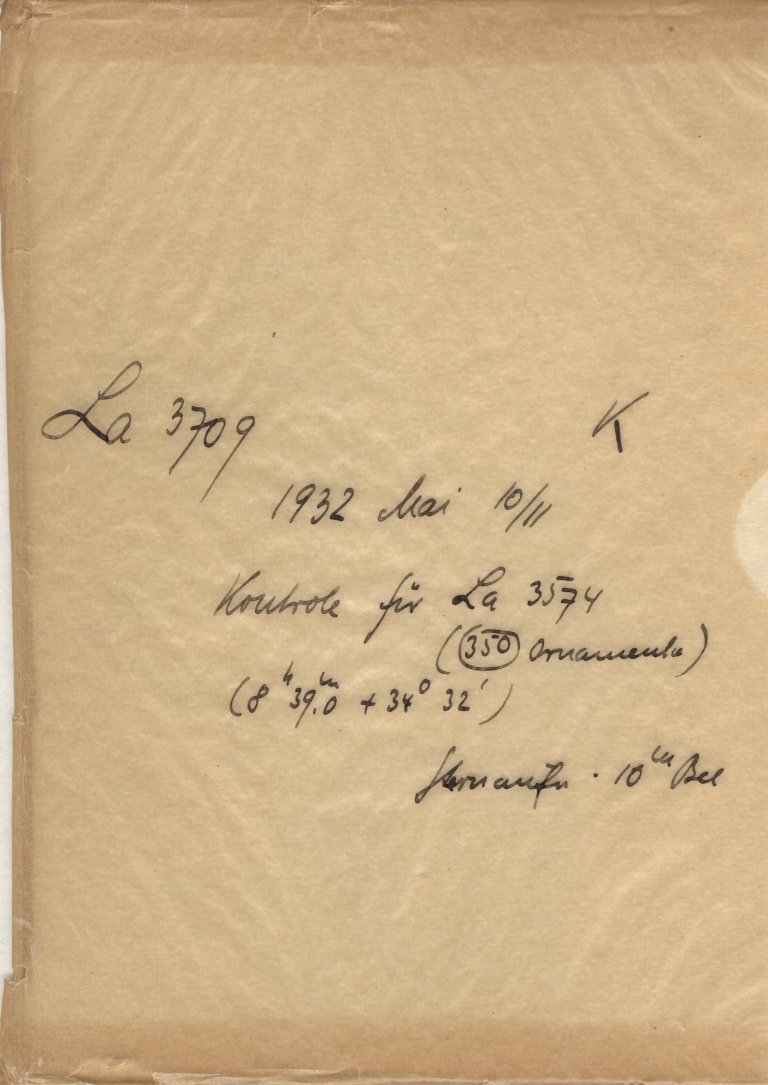 La 3709 K
1932 Mai 10/11
Kontrole für La 3574
(350 Ornamenta)
(8ʰ 39.ᵐ0 + 34⁰ 32')
Sternaufn. 10ᵐ Bel